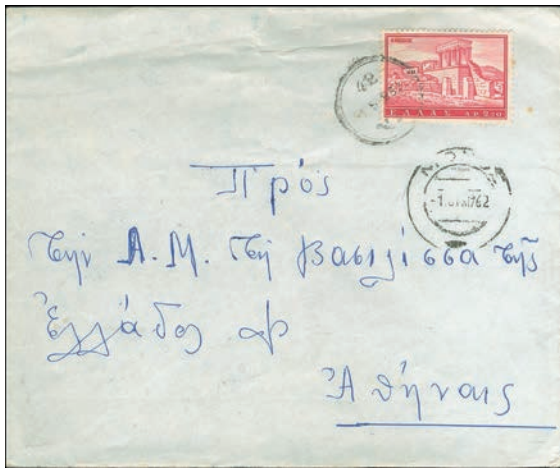 ΕΛΛΑΣ
Πρός
τήν Α.Μ. τή βασιλίσσα τῆς
Ἑλλάδος
Ἀθήναις